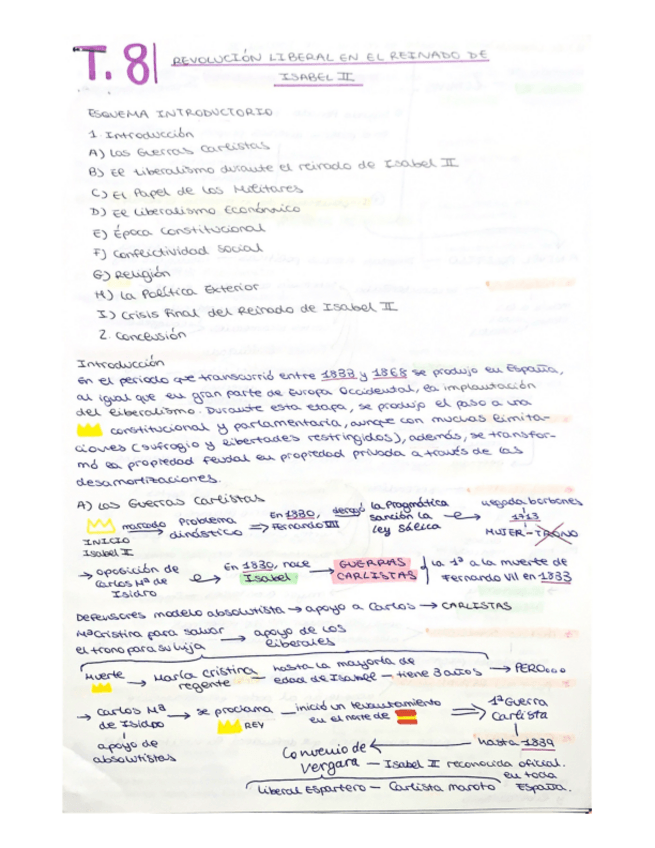 T.8| REVOLUCIÓN LIBERAL EN EL REINADO DE
ISABEL II
ESQUEMA INTRODUCTORIO
1. Introducción
A) Las Guerras Carlistas
B) El Liberalismo durante el reinado de Isabel II
C) El Papel de los Militares
D) El Liberalismo Económico
E) Época Constitucional
F) Conflictividad Social
G) Religión
H) La Política Exterior
I) Crisis Final del Reinado de Isabel II
2. Conclusión
Introducción
En el periodo que transcurrió entre 1833 y 1868 se produjo en España,
al igual que en gran parte de Europa Occidental, la implantación
del liberalismo. Durante esta etapa, se produjo el paso a una
constitucional y parlamentaria, aunque con muchas limita-
ciones (sufragio y libertades restringidos), además, se transfor-
mó la propiedad feudal en propiedad privada a través de las
desamortizaciones.
A) Las Guerras Carlistas
INICIO Isabel I marcado → Problema dinástico ⇒ En 1830, Fernando VII derogó → la Pragmática sanción la ley Sálica → llegada borbones 1713 MUJER - TRONO
→ oposición de Carlos Mª de Isidro → En 1830, nace Isabel → GUERRAS CARLISTAS { La 1ª a la muerte de Fernando VII en 1833
Defensores modelo absolutista → apoyo a Carlos → CARLISTAS
MªCristina para salvar el trono para su hija → apoyo de los liberales
Muerte → María Cristina regente — hasta la mayoría de edad de Isabel — tiene 3 años → PERO...
→ Carlos Mª de Isidro → se proclama REY — inició un levantamiento en el norte de ⇒ 1ª Guerra Carlista
apoyo de absolutistas
hasta 1839
Convenio de Vergara — Isabel II reconocida oficial. en toda España.
Liberal Espartero - Carlista Maroto